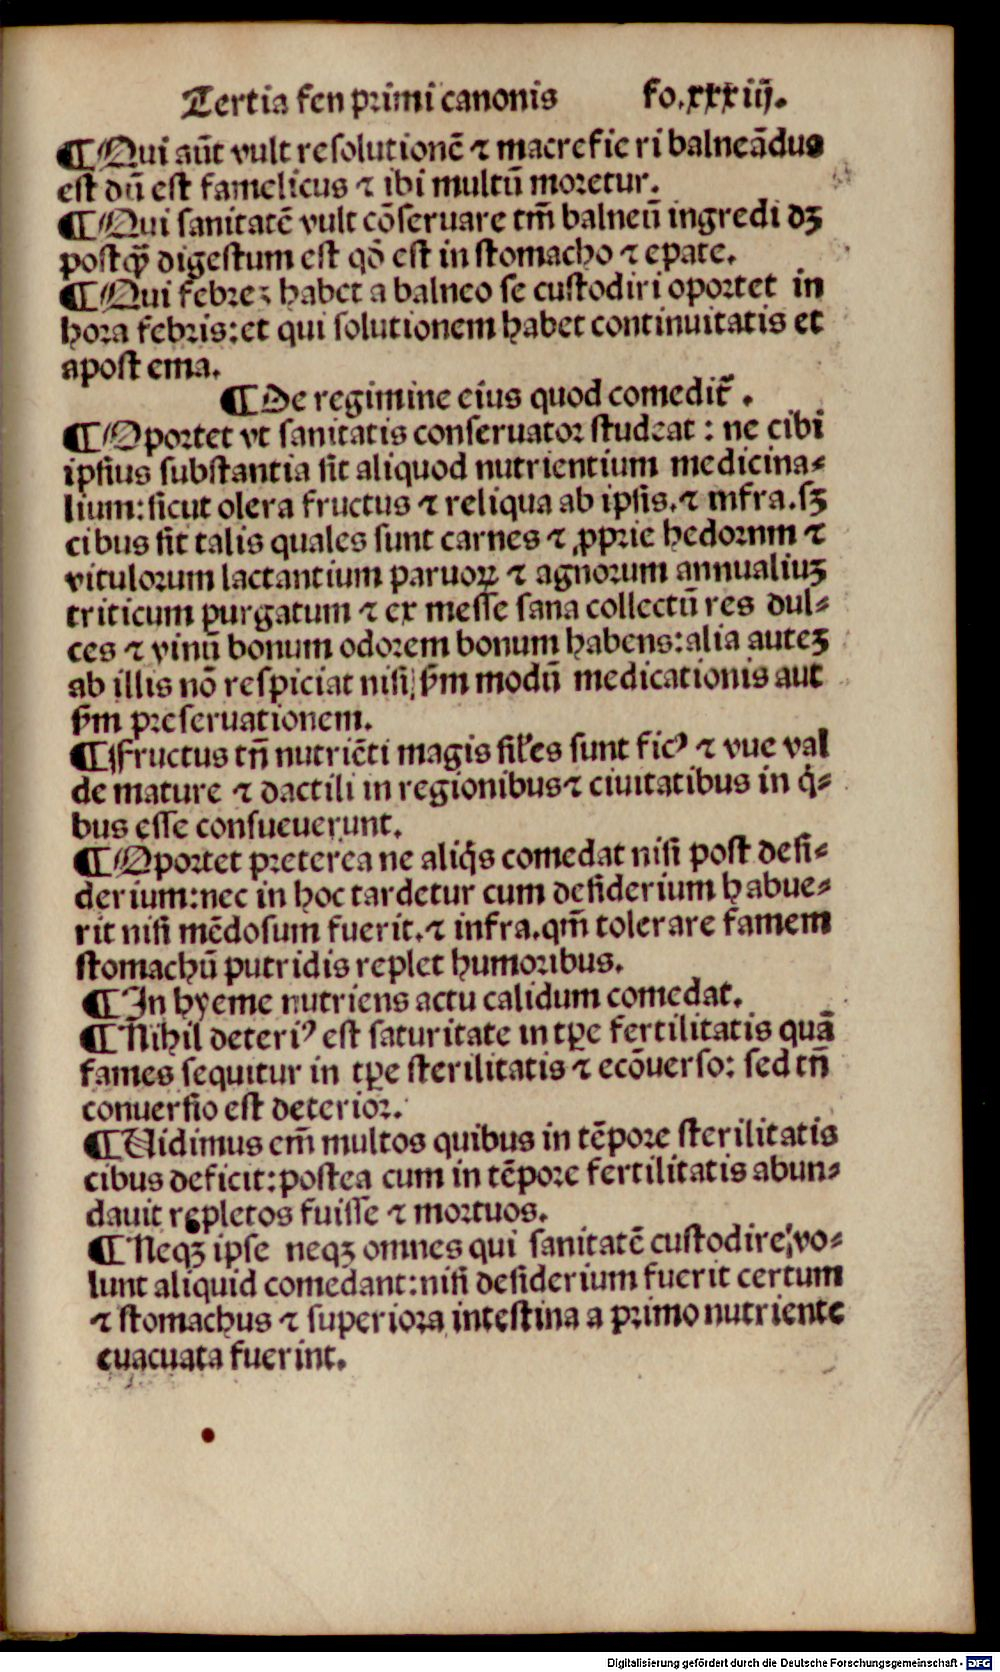 Tertia fen primi canonis fo.xxxiij.
¶ Qui aūt vult resolutionē ⁊ macrefieri balneādus
est dū est famelicus ⁊ ibi multū moretur.
¶ Qui sanitatē vult cōseruare tm̄ balneū ingredi dꝫ
postꝙ̃ digestum est qd̄ est in stomacho ⁊ epate.
¶ Qui febreꝫ habet a balneo se custodiri oportet in
hora febris: et qui solutionem habet continuitatis et
apostema.
¶ De regimine eius quod comedit̄.
¶ Oportet vt sanitatis conseruator studeat: ne cibi
ipsius substantia sit aliquod nutrientium medicina-
lium: sicut olera fructus ⁊ reliqua ab ipsis. ⁊ infra. sꝫ
cibus sit talis quales sunt carnes ⁊ ꝓprie hedorum ⁊
vitulorum lactantium paruoꝝ ⁊ agnorum annualiuꝫ
triticum purgatum ⁊ ex messe sana collectū res dul-
ces ⁊ vinū bonum odorem bonum habens: alia auteꝫ
ab illis nō respiciat nisi ẜm modū medicationis aut
ẜm preseruationem.
¶ Fructus tn̄ nutriēti magis sil'es sunt ficꝰ ⁊ vue val
de mature ⁊ dactili in regionibus ⁊ ciuitatibus in q̇-
bus esse consueuerunt.
¶ Oportet preterea ne aliq̇s comedat nisi post desi-
derium: nec in hoc tardetur cum desiderium habue-
rit nisi mēdosum fuerit. ⁊ infra. qm̄ tolerare famem
stomachū putridis replet humoribus.
¶ In hyeme nutriens actu calidum comedat.
¶ Nihil deteriꝰ est saturitate in tꝑe fertilitatis quā
fames sequitur in tꝑe sterilitatis ⁊ ecōuerso: sed tn̄
conuersio est deterior.
¶ Uidimus em̄ multos quibus in tēpore sterilitatis
cibus deficit: postea cum in tēpore fertilitatis abun-
dauit repletos fuisse ⁊ mortuos.
¶ Neqꝫ ipse neqꝫ omnes qui sanitatē custodire vo-
lunt aliquid comedant: nisi desiderium fuerit certum
⁊ stomachus ⁊ superiora intestina a primo nutriente
euacuata fuerint.
Digitalisierung gefördert durch die Deutsche Forschungsgemeinschaft - DFG